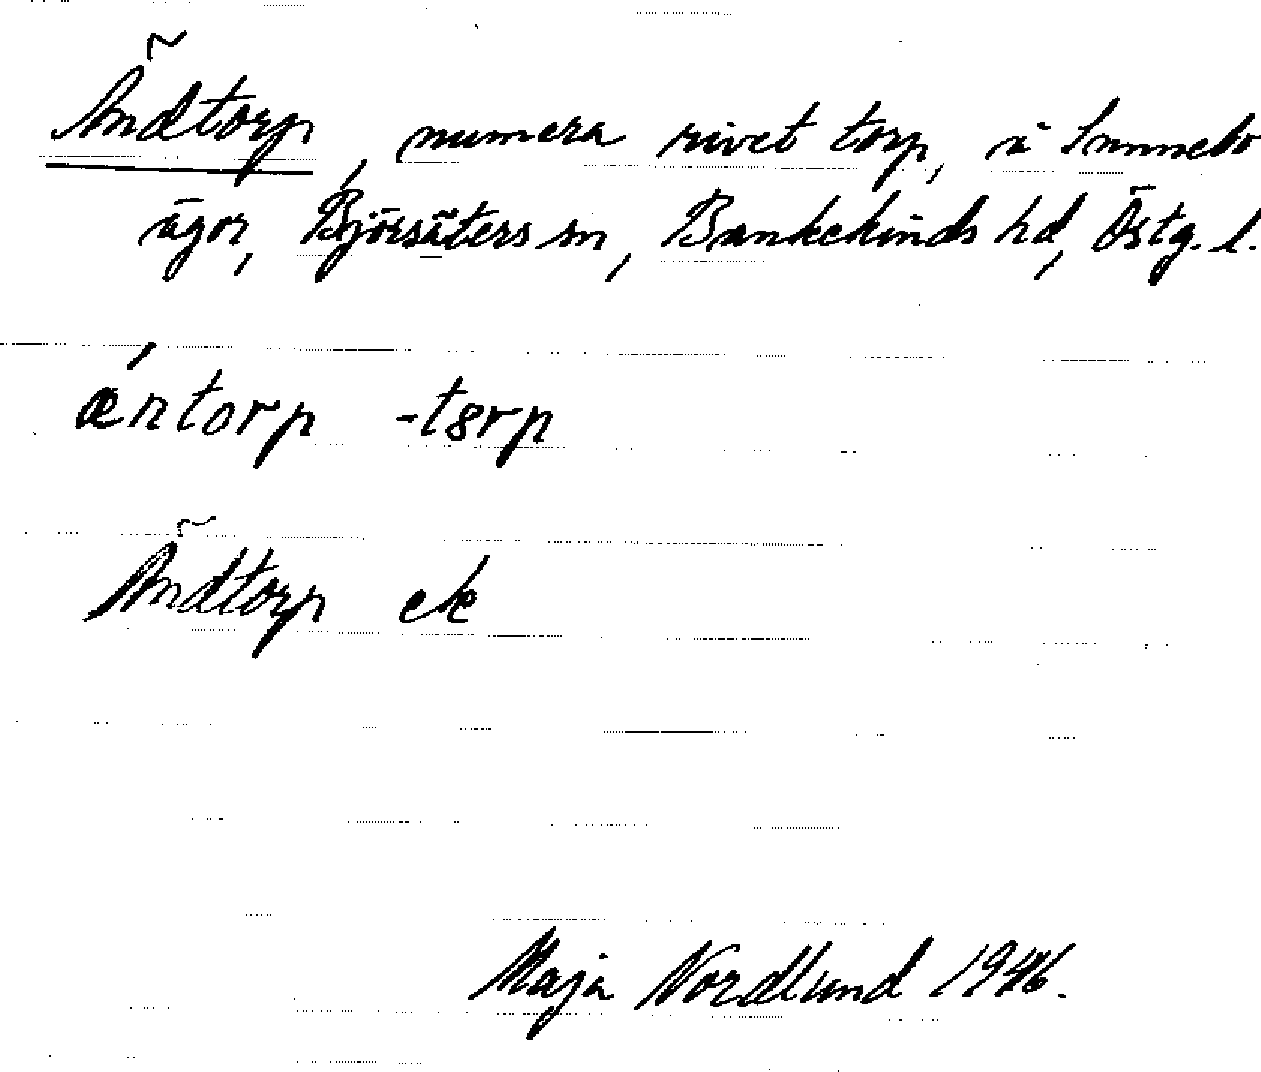 Ändtorp, numera rivet torp, å Sunnebo
ägor, Björsäters sn, Bankekinds hd, Östg. l.
æ´ntorp -tørp
Ändtorp ek
Maja Nordlund 1946.